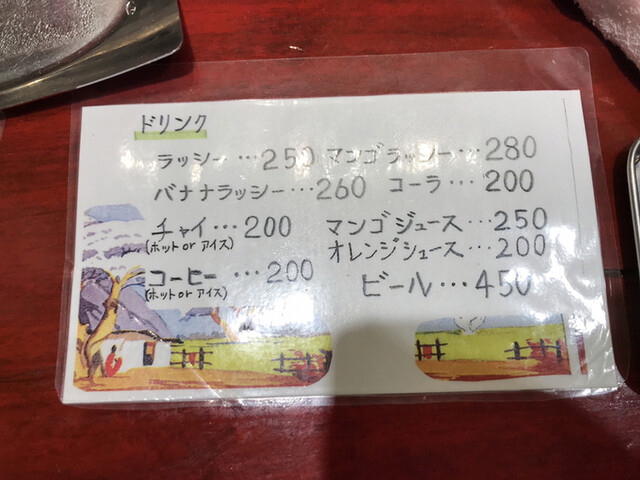 ドリンク
ラッシー…250 マンゴラッシー…280
バナナラッシー…260 コーラ…200
チャイ…200 マンゴジュース…250
(ホット or アイス) オレンジジュース…200
コーヒー…200 ビール…450
(ホット or アイス)